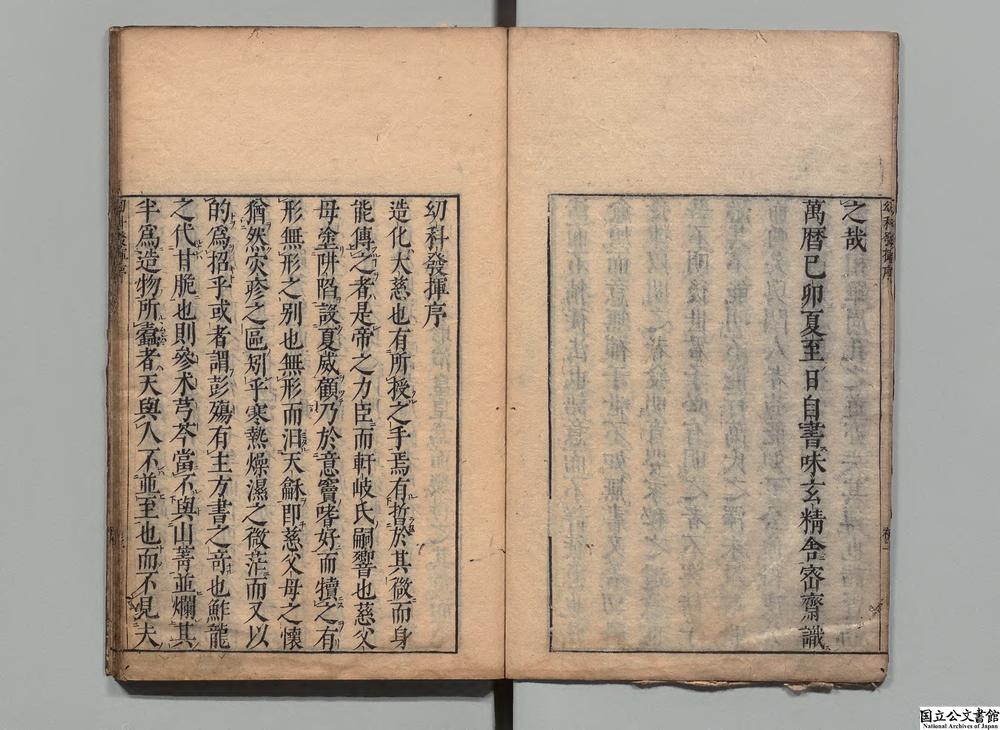 之哉
萬暦己卯夏至日自書味玄精舍密齋識
幼科發揮序
造化大慈也有所授之手焉有哲於其微而身
能傳之者是帝之力臣而軒岐氏嗣響也慈父
母塗阱陷設夏威顧乃於意竇嗜好而犢之有
形無形之别也無形而汨天龢即慈父母之懷
猶然灾疹之區矧乎寒熱燥濕之微茫而又以
的為招乎或者謂彭殤有主方書之竒也鮓龍
之代甘脆也則參朮芎芩當不與山菁並爛其
半為造物所蠧者天與人不並至也而不見夫
国立公文書館
National Archives of Japan